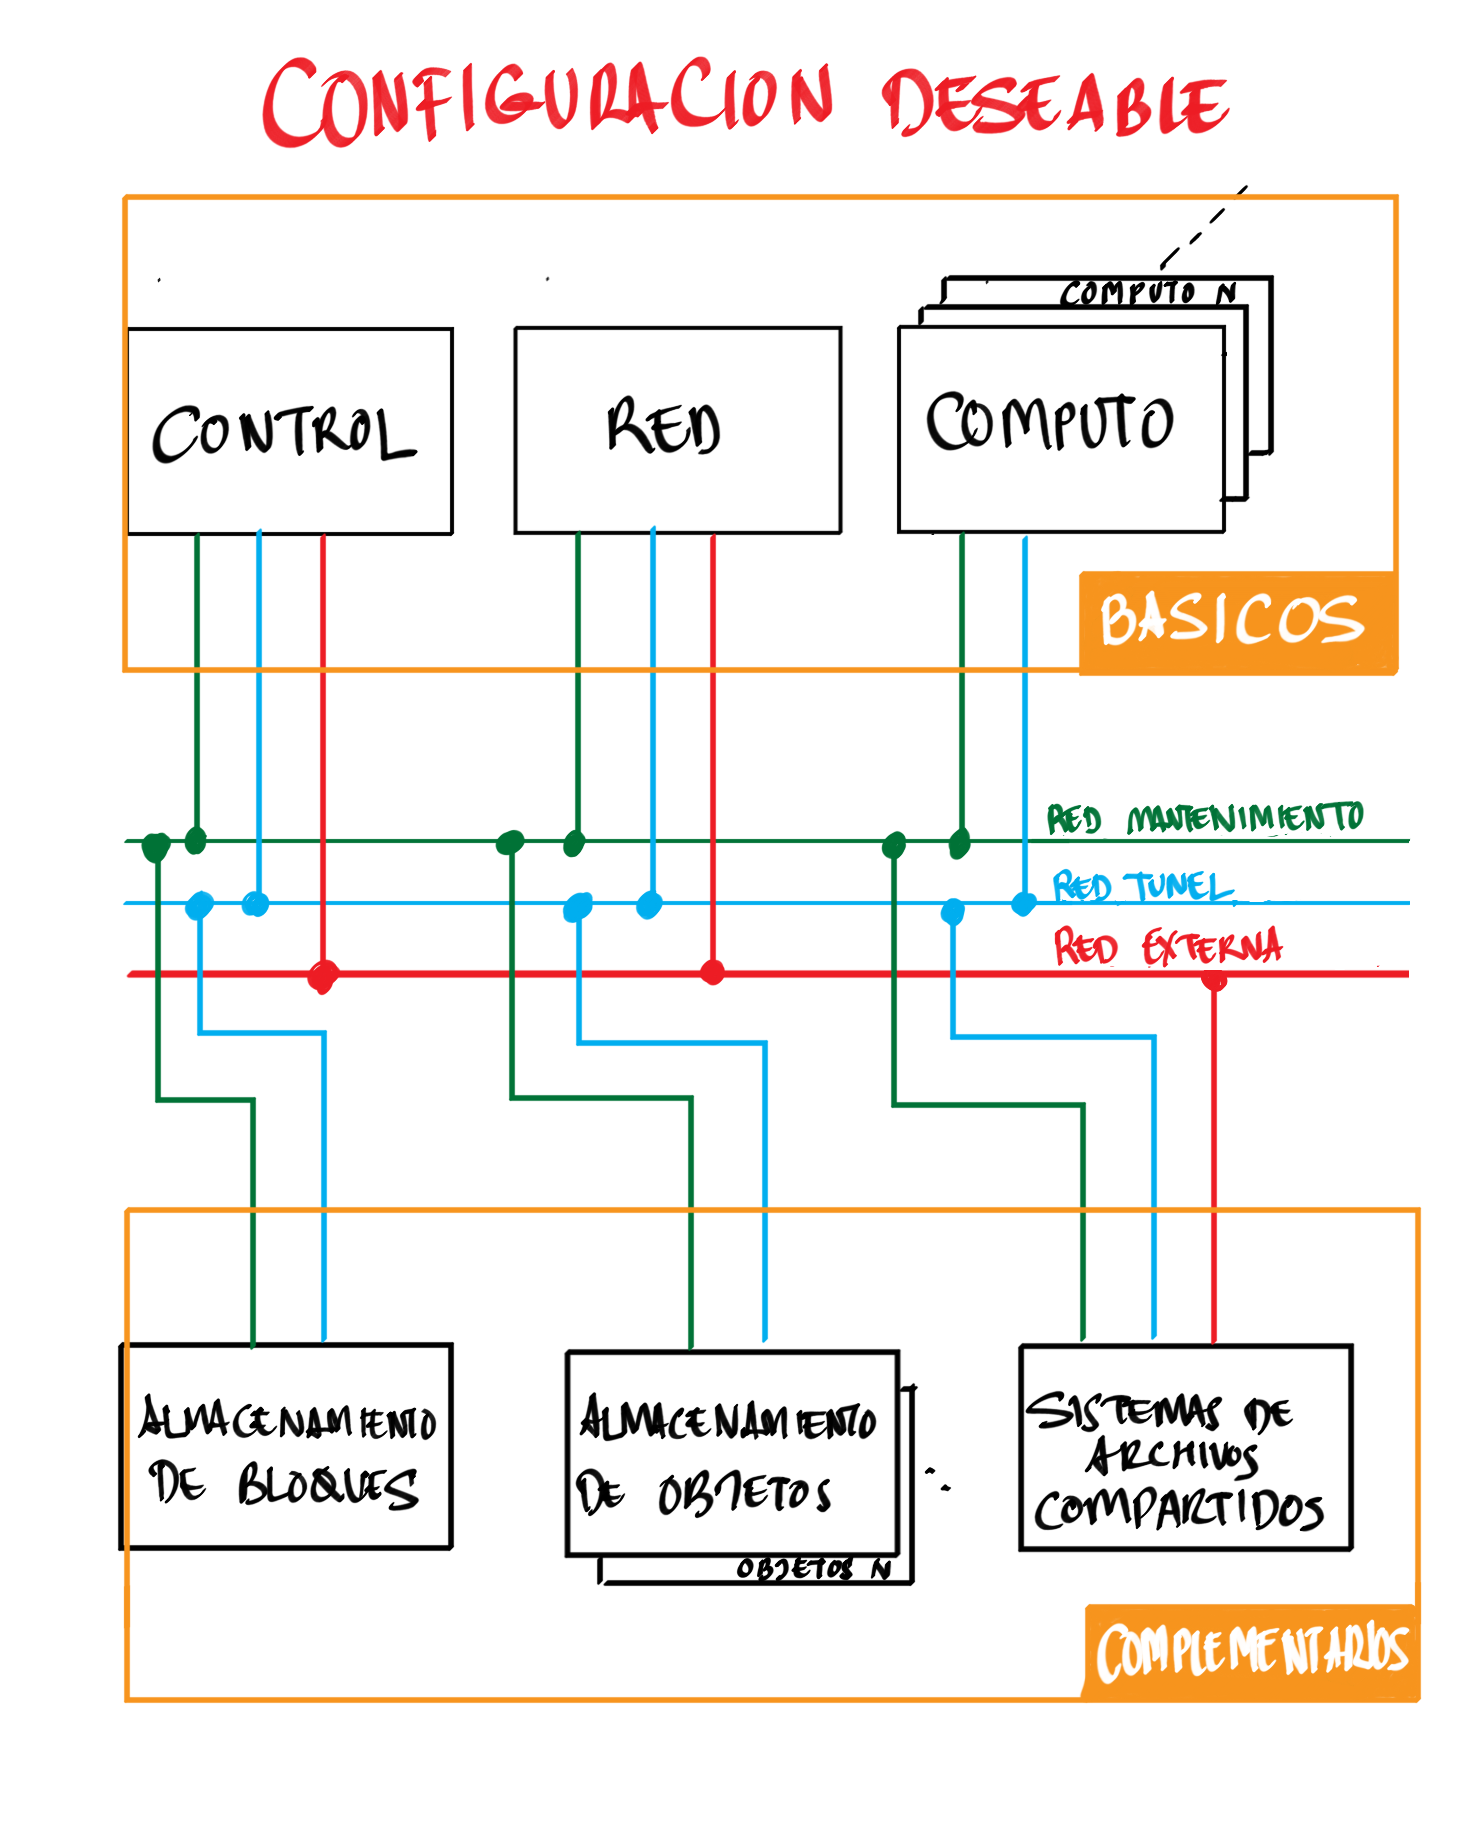 CONFIGURACION DESEABLE
COMPUTO N
CONTROL
RED
COMPUTO
BASICOS
RED MANTENIMIENTO
RED TUNEL
RED EXTERNA
ALMACENAMIENTO
DE BLOQUES
ALMACENAMIENTO
DE OBJETOS
OBJETOS N
SISTEMAS DE
ARCHIVOS
COMPARTIDOS
COMPLEMENTARIOS